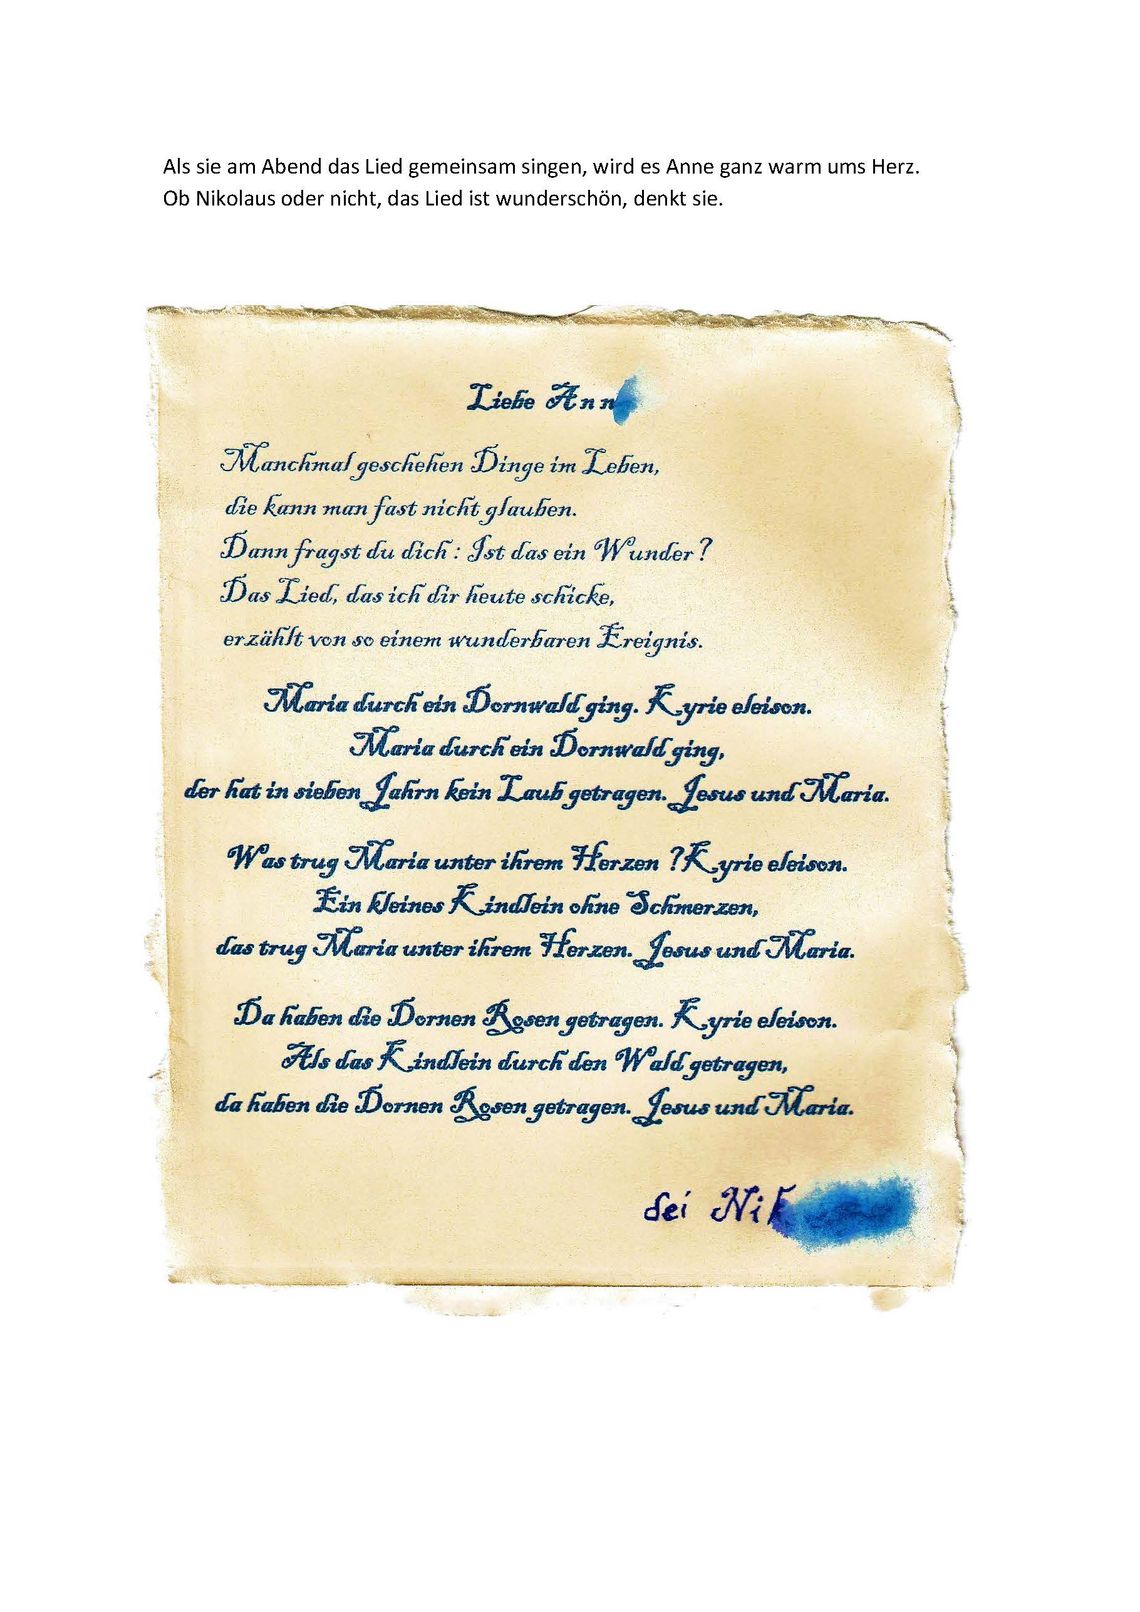 Als sie am Abend das Lied gemeinsam singen, wird es Anne ganz warm ums Herz.
Ob Nikolaus oder nicht, das Lied ist wunderschön, denkt sie.
Liebe Ann
Manchmal geschehen Dinge im Leben,
die kann man fast nicht glauben.
Dann fragst du dich : Ist das ein Wunder ?
Das Lied, das ich dir heute schicke,
erzählt von so einem wunderbaren Ereignis.
Maria durch ein Dornwald ging. Kyrie eleison.
Maria durch ein Dornwald ging,
der hat in sieben Jahrn kein Laub getragen. Jesus und Maria.
Was trug Maria unter ihrem Herzen ?Kyrie eleison.
Ein kleines Kindlein ohne Schmerzen,
das trug Maria unter ihrem Herzen. Jesus und Maria.
Da haben die Dornen Rosen getragen. Kyrie eleison.
Als das Kindlein durch den Wald getragen,
da haben die Dornen Rosen getragen. Jesus und Maria.
dei Nik